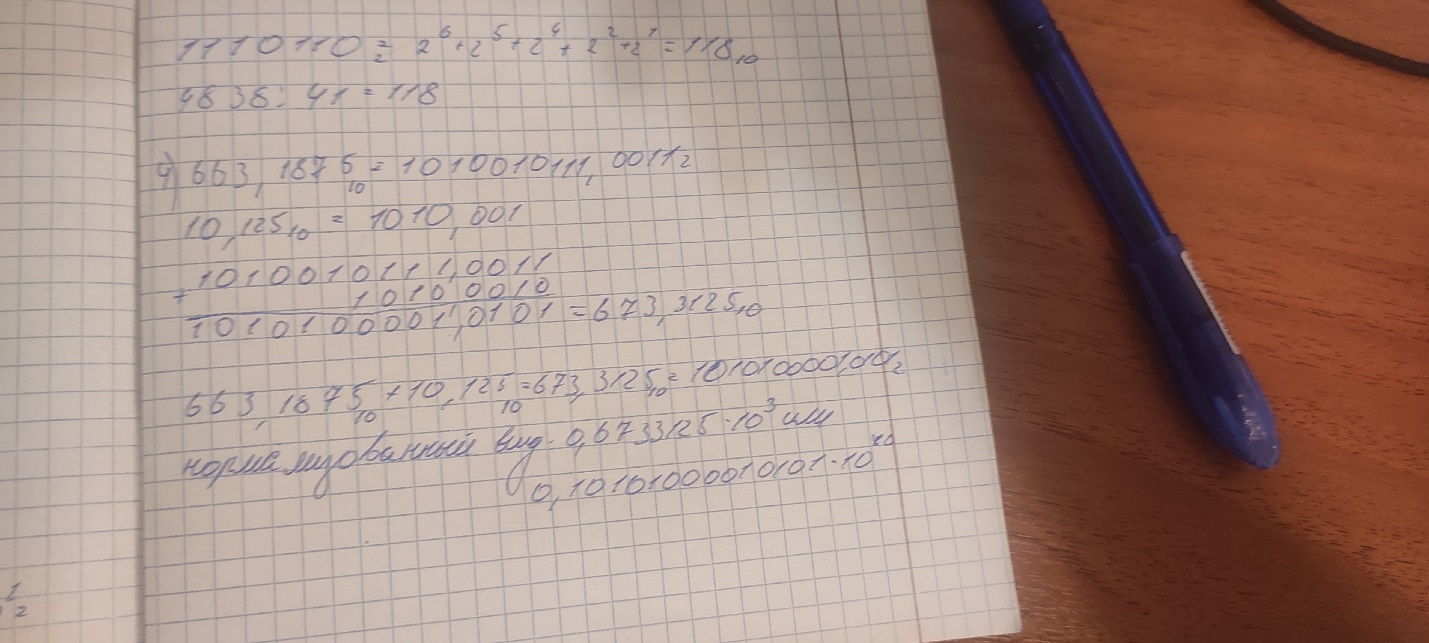 1110110₂ = 2⁶+2⁵+2⁴+2²+2¹=118₁₀
4838 : 41 = 118
4) 663,1875₁₀ = 1010010111,0011₂
10,125₁₀ = 1010,001
1010010111,0011
+ 1010 0010
1010100001,0101 = 673,3125₁₀
663,1875₁₀ + 10,125₁₀ = 673,3125₁₀ =
нормализованный вид: 0,6733125·10³ или
0,10101000010101·10¹⁰
1/2